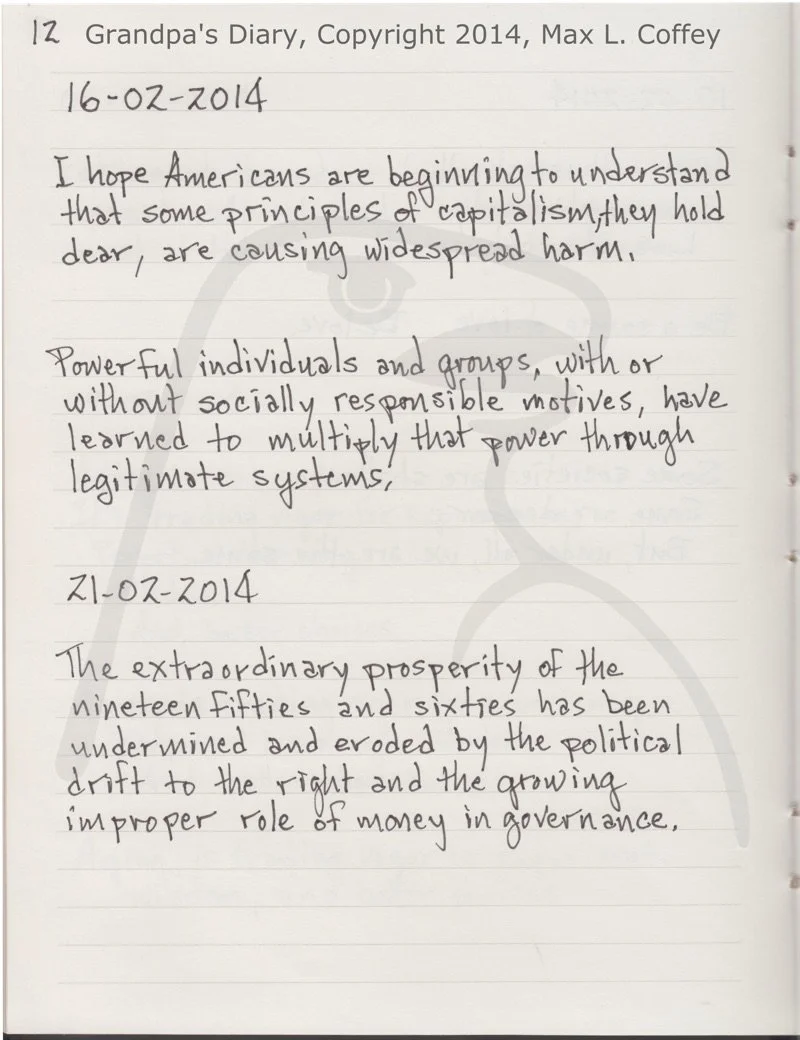 12 Grandpa's Diary, Copyright 2014, Max L. Coffey
16-02-2014
I hope Americans are beginning to understand
that some principles of capitalism, they hold
dear, are causing widespread harm.
Powerful individuals and groups, with or
without socially responsible motives, have
learned to multiply that power through
legitimate systems.
21-02-2014
The extraordinary prosperity of the
nineteen fifties and sixties has been
undermined and eroded by the political
drift to the right and the growing
improper role of money in governance.